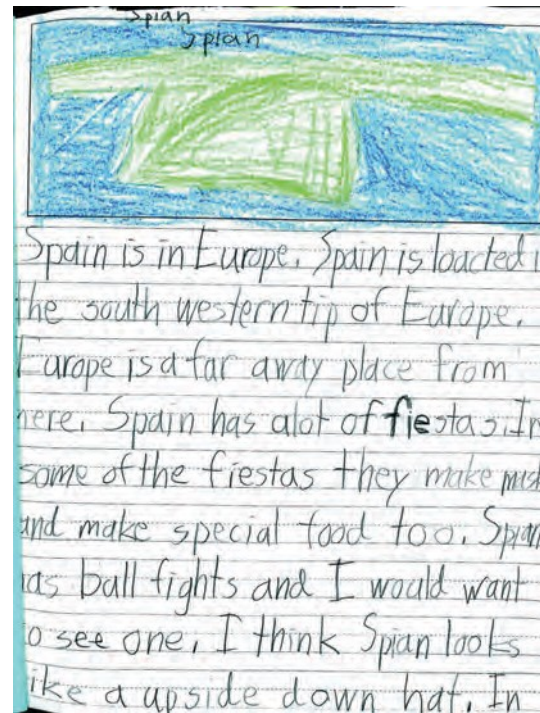 Spian
Spian
Spain is in Europe. Spain is loacted i
the south western tip of Europe.
Europe is a far away place from
here. Spain has alot of fiestas. In
some of the fiestas they make mask
and make special food too. Spian
has ball fights and I would want
to see one. I think Spian looks
like a upside down hat. In